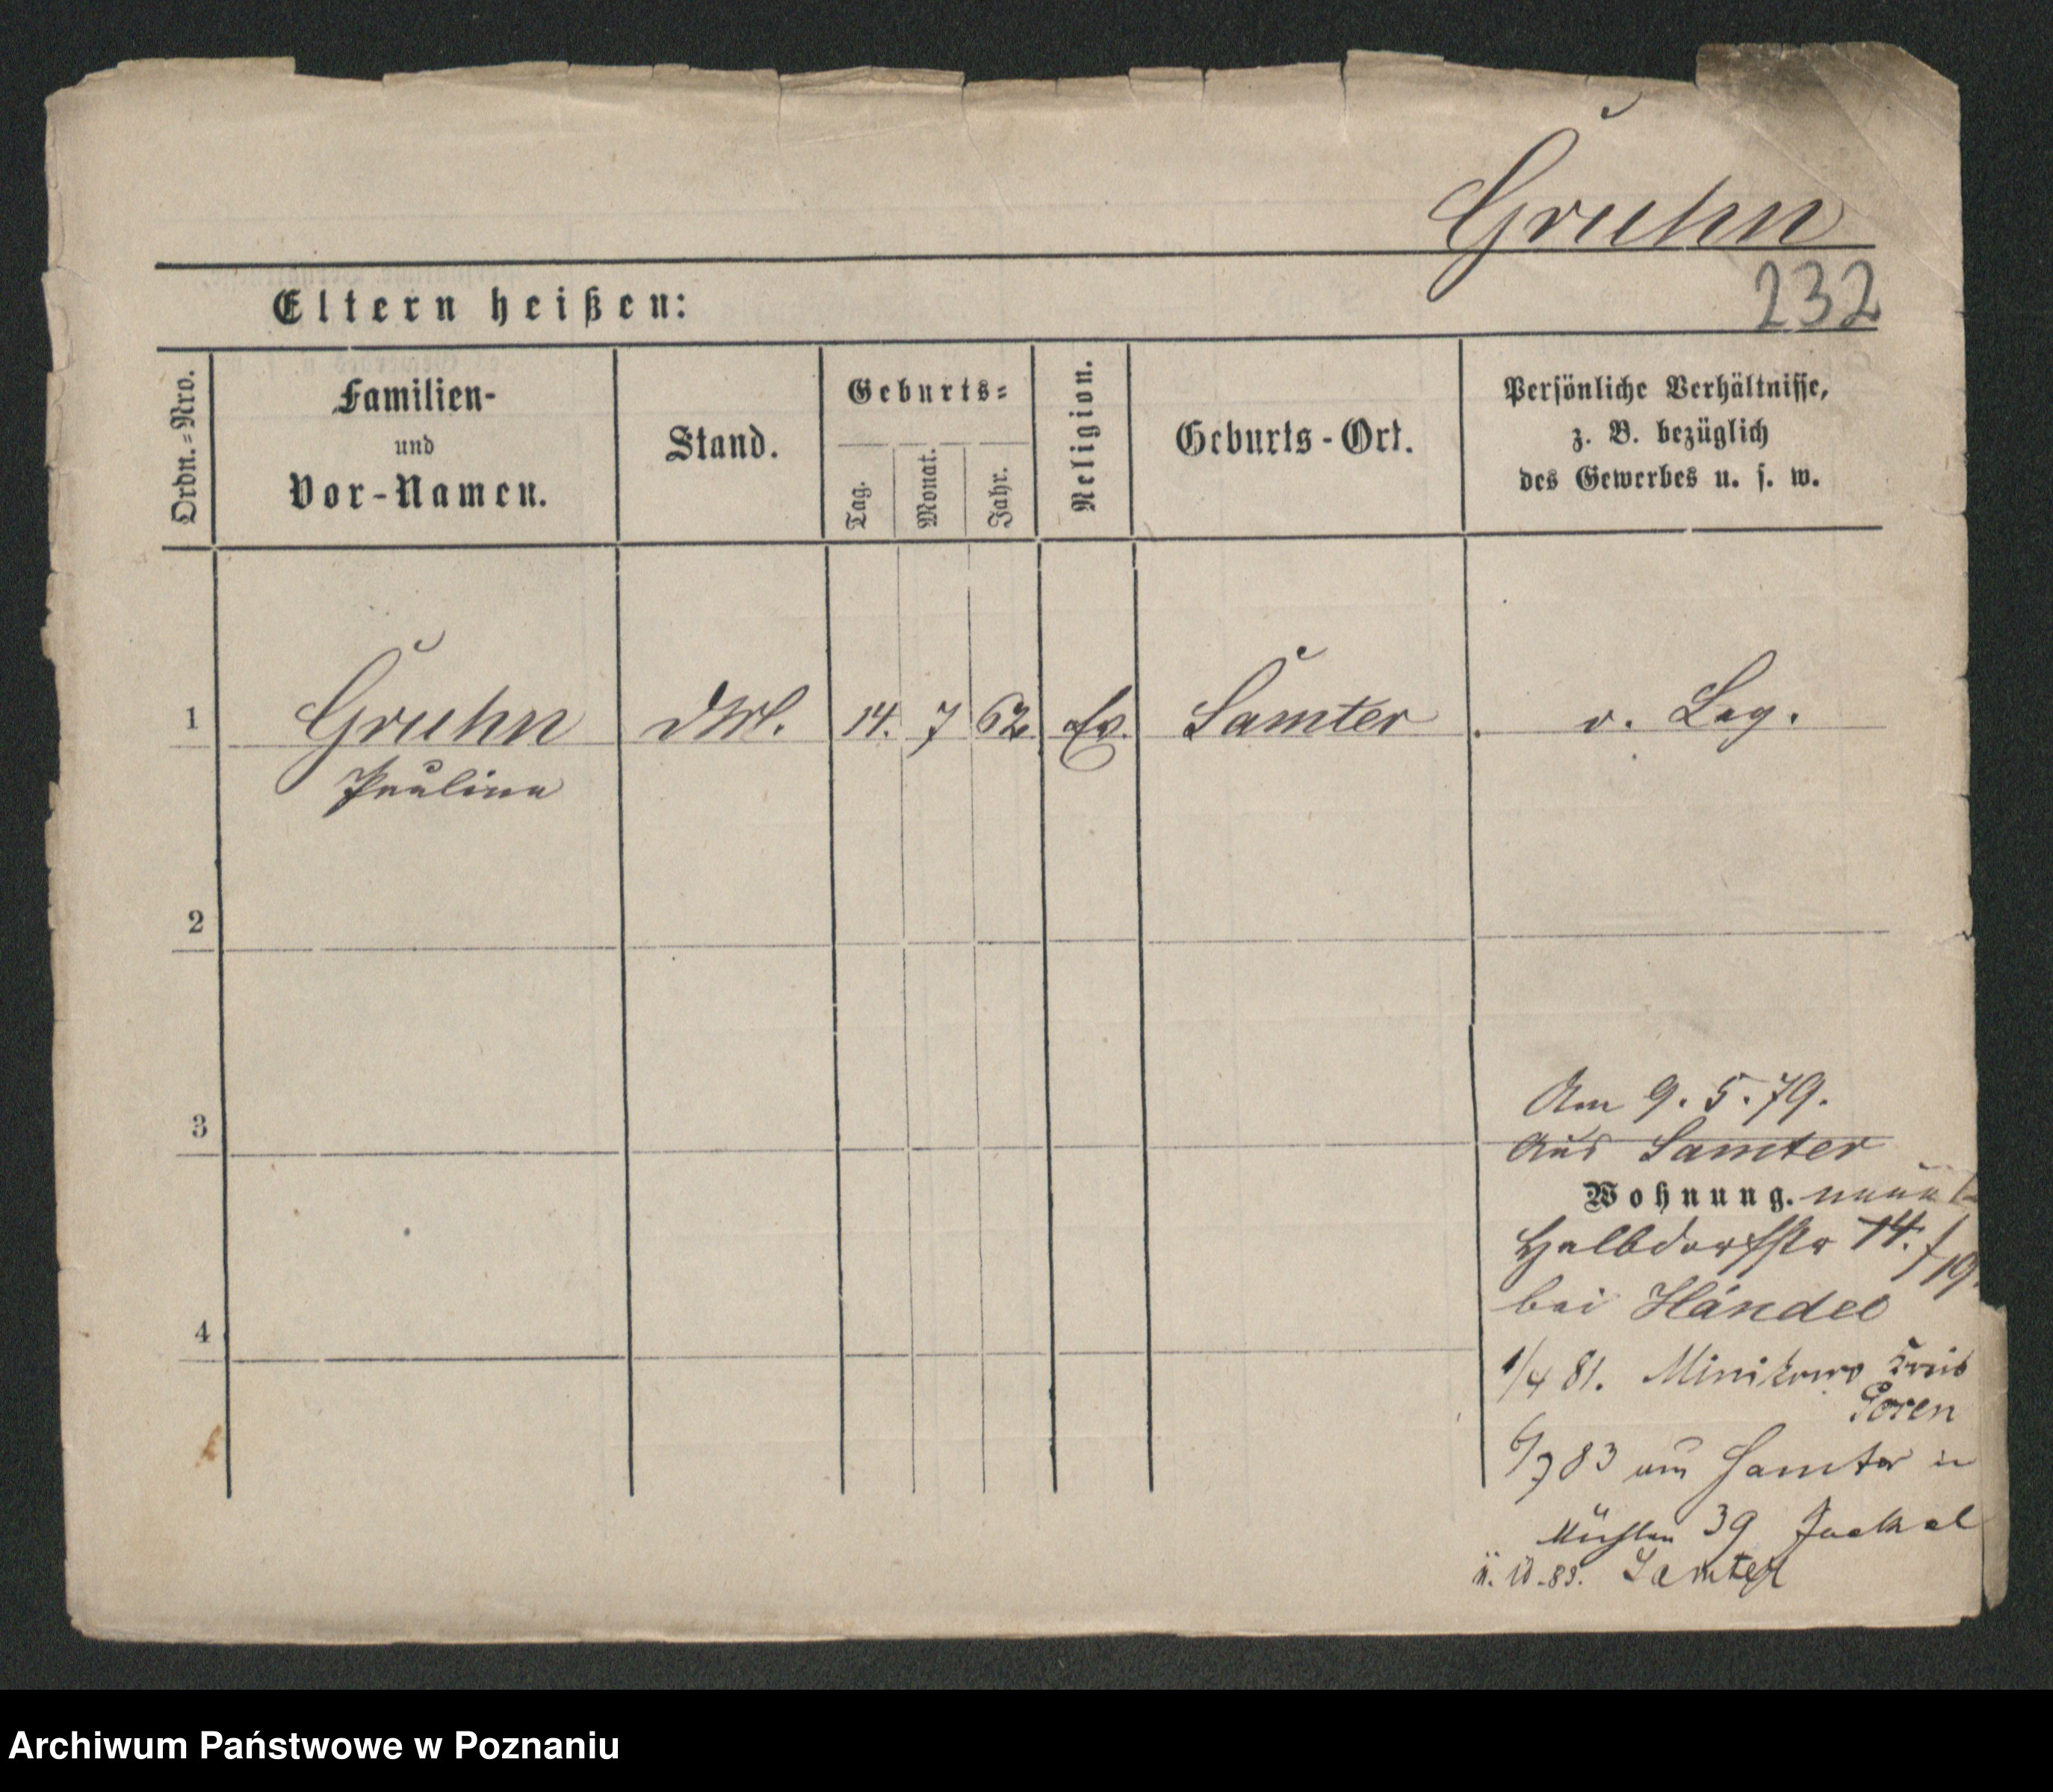 Gruhn
232
Eltern heißen:
Ordn.-Nro.
Familien-
und
Vor-Namen.
Stand.
Geburts-
Tag.
Monat.
Jahr.
Religion.
Geburts-Ort.
Persönliche Verhältnisse,
z. B. bezüglich
des Gewerbes u. s. w.
1 Gruhn 14. 7 62 Ev. Samter v. Leg.
Pauline
2
3
Am 9. 5. 79.
aus Samter
Wohnung.
Halbdorfstr 14. 19.
bei Händel
4
1/4 81. Minikowo Kreis
Posen
6/7 83 aus Samter in
Mühlen 39 Jaekel
Samter
Archiwum Państwowe w Poznaniu